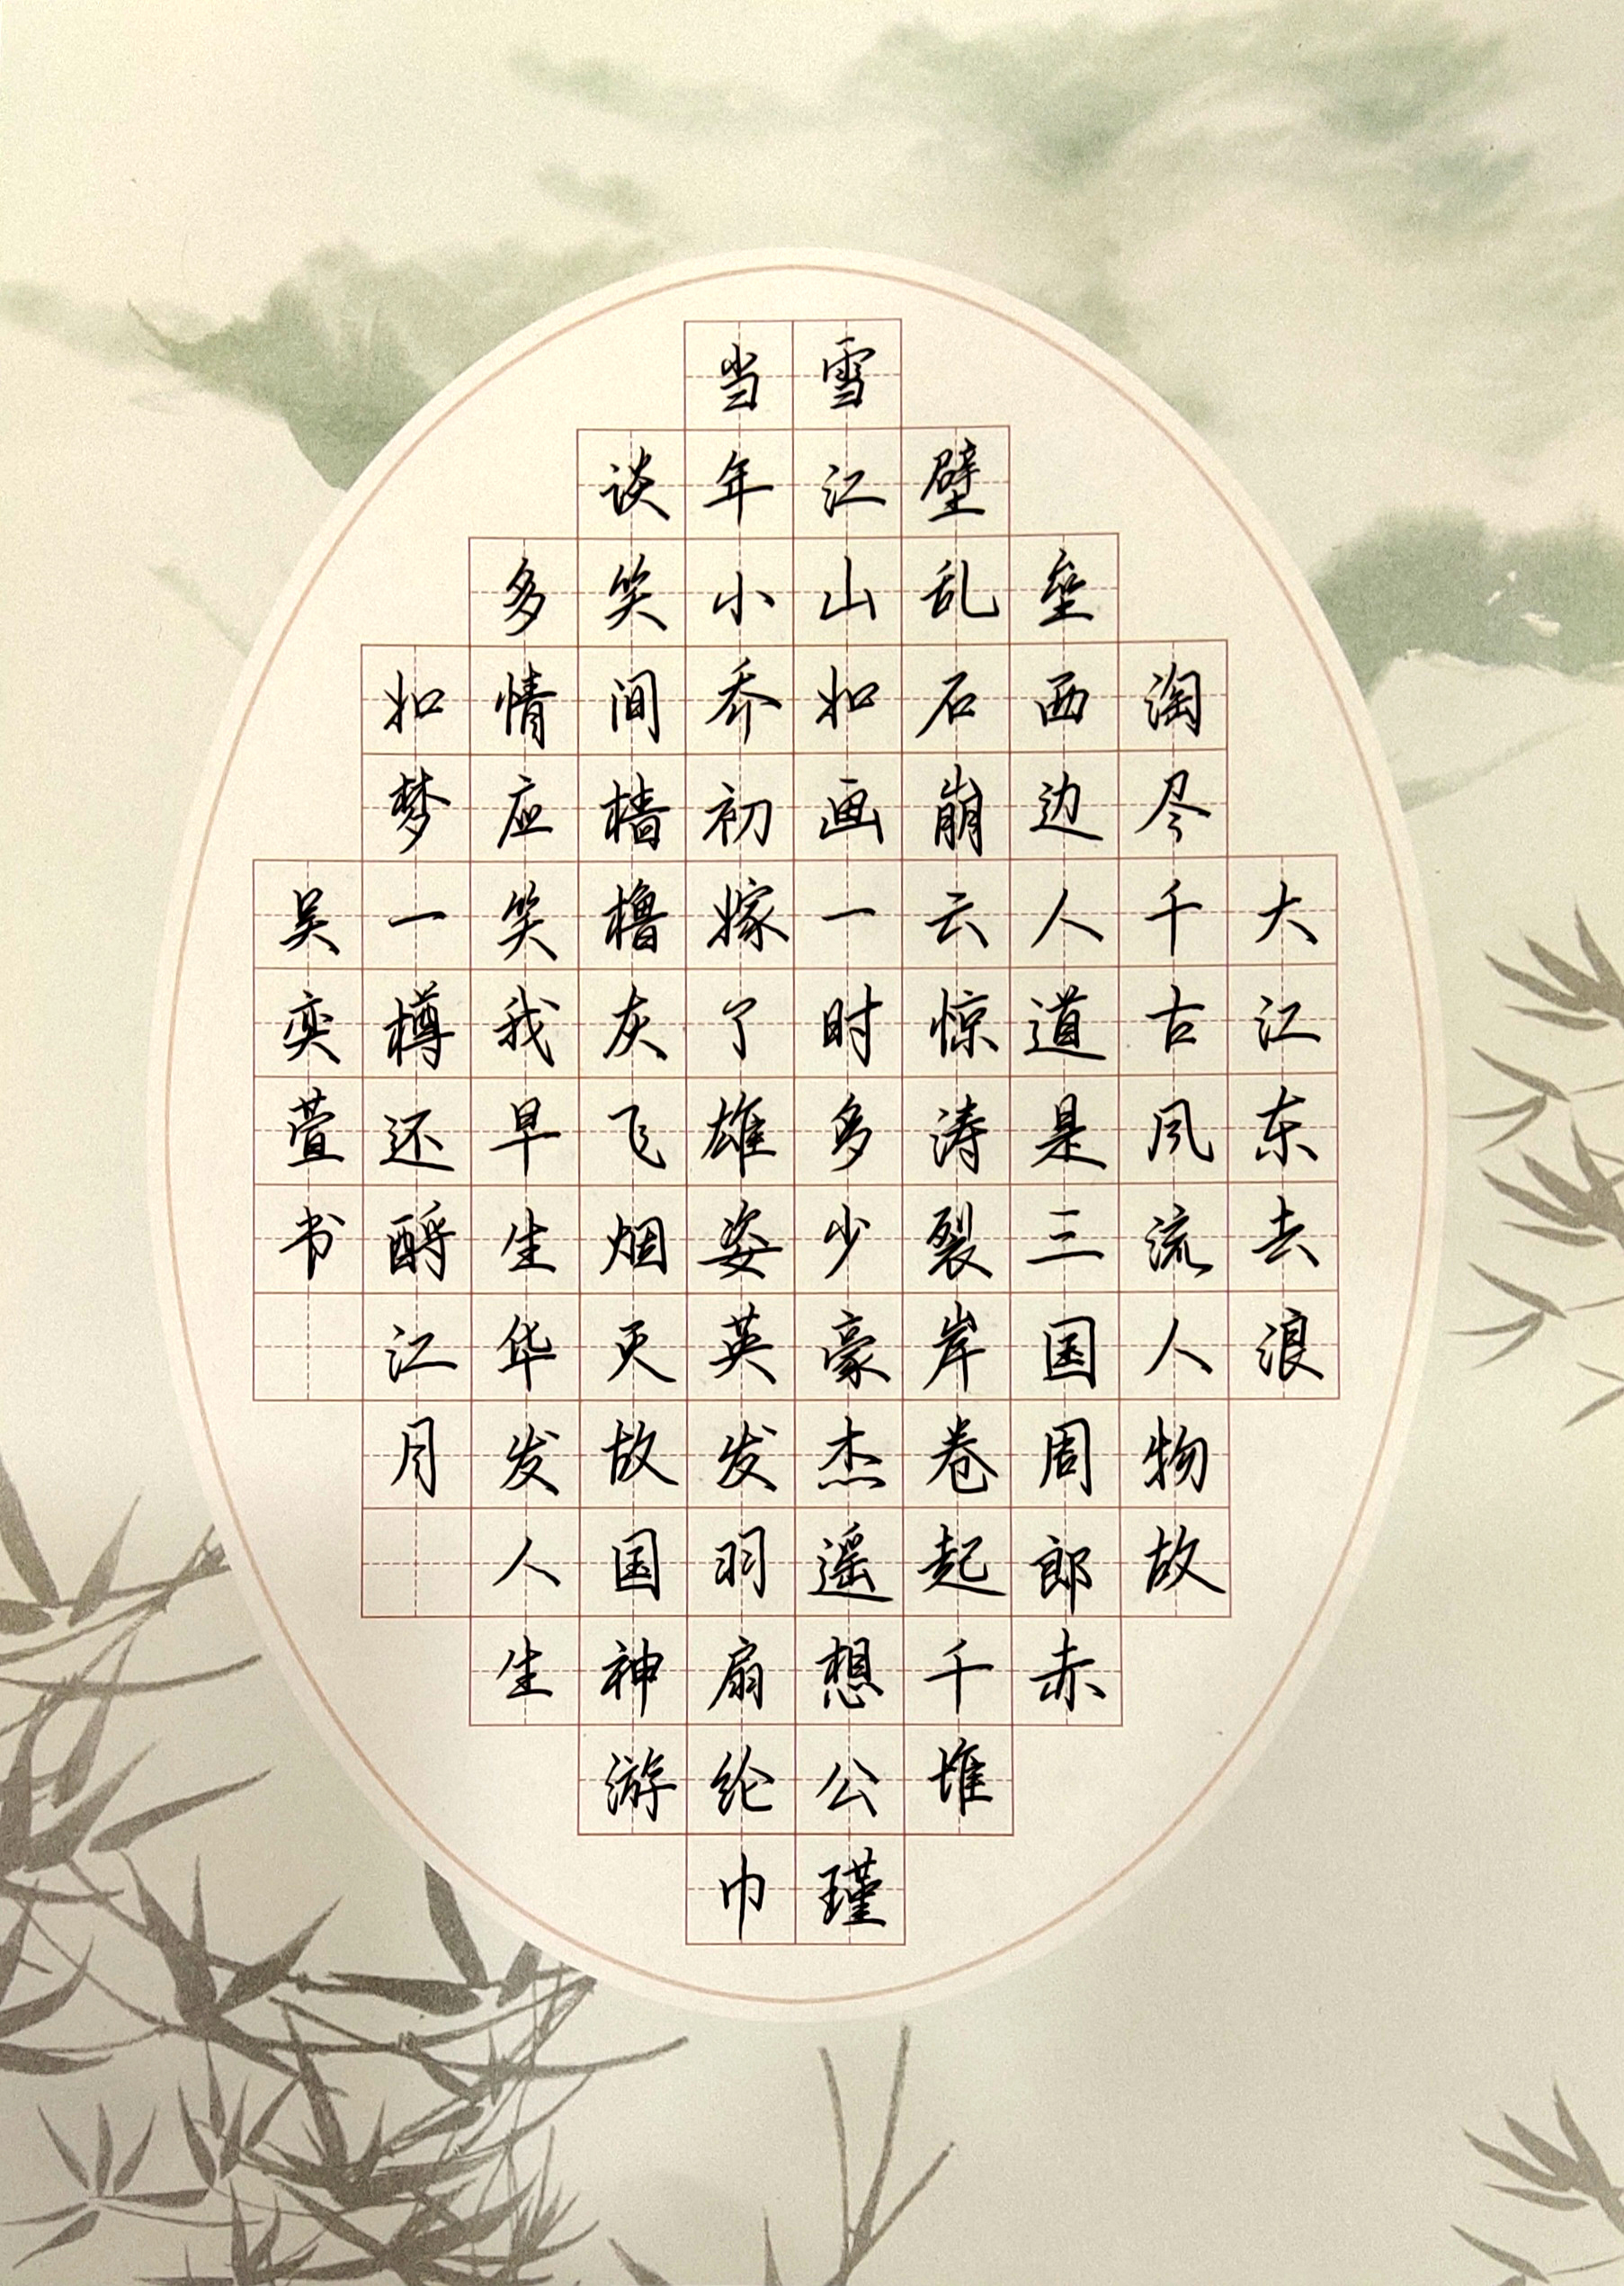 大江东去浪
淘尽千古风流人物故
垒西边人道是三国周郎赤
壁乱石崩云惊涛裂岸卷起千堆
雪江山如画一时多少豪杰遥想公瑾
当年小乔初嫁了雄姿英发羽扇纶巾
谈笑间樯橹灰飞烟灭故国神游
多情应笑我早生华发人生
如梦一樽还酹江月
吴奕萱书